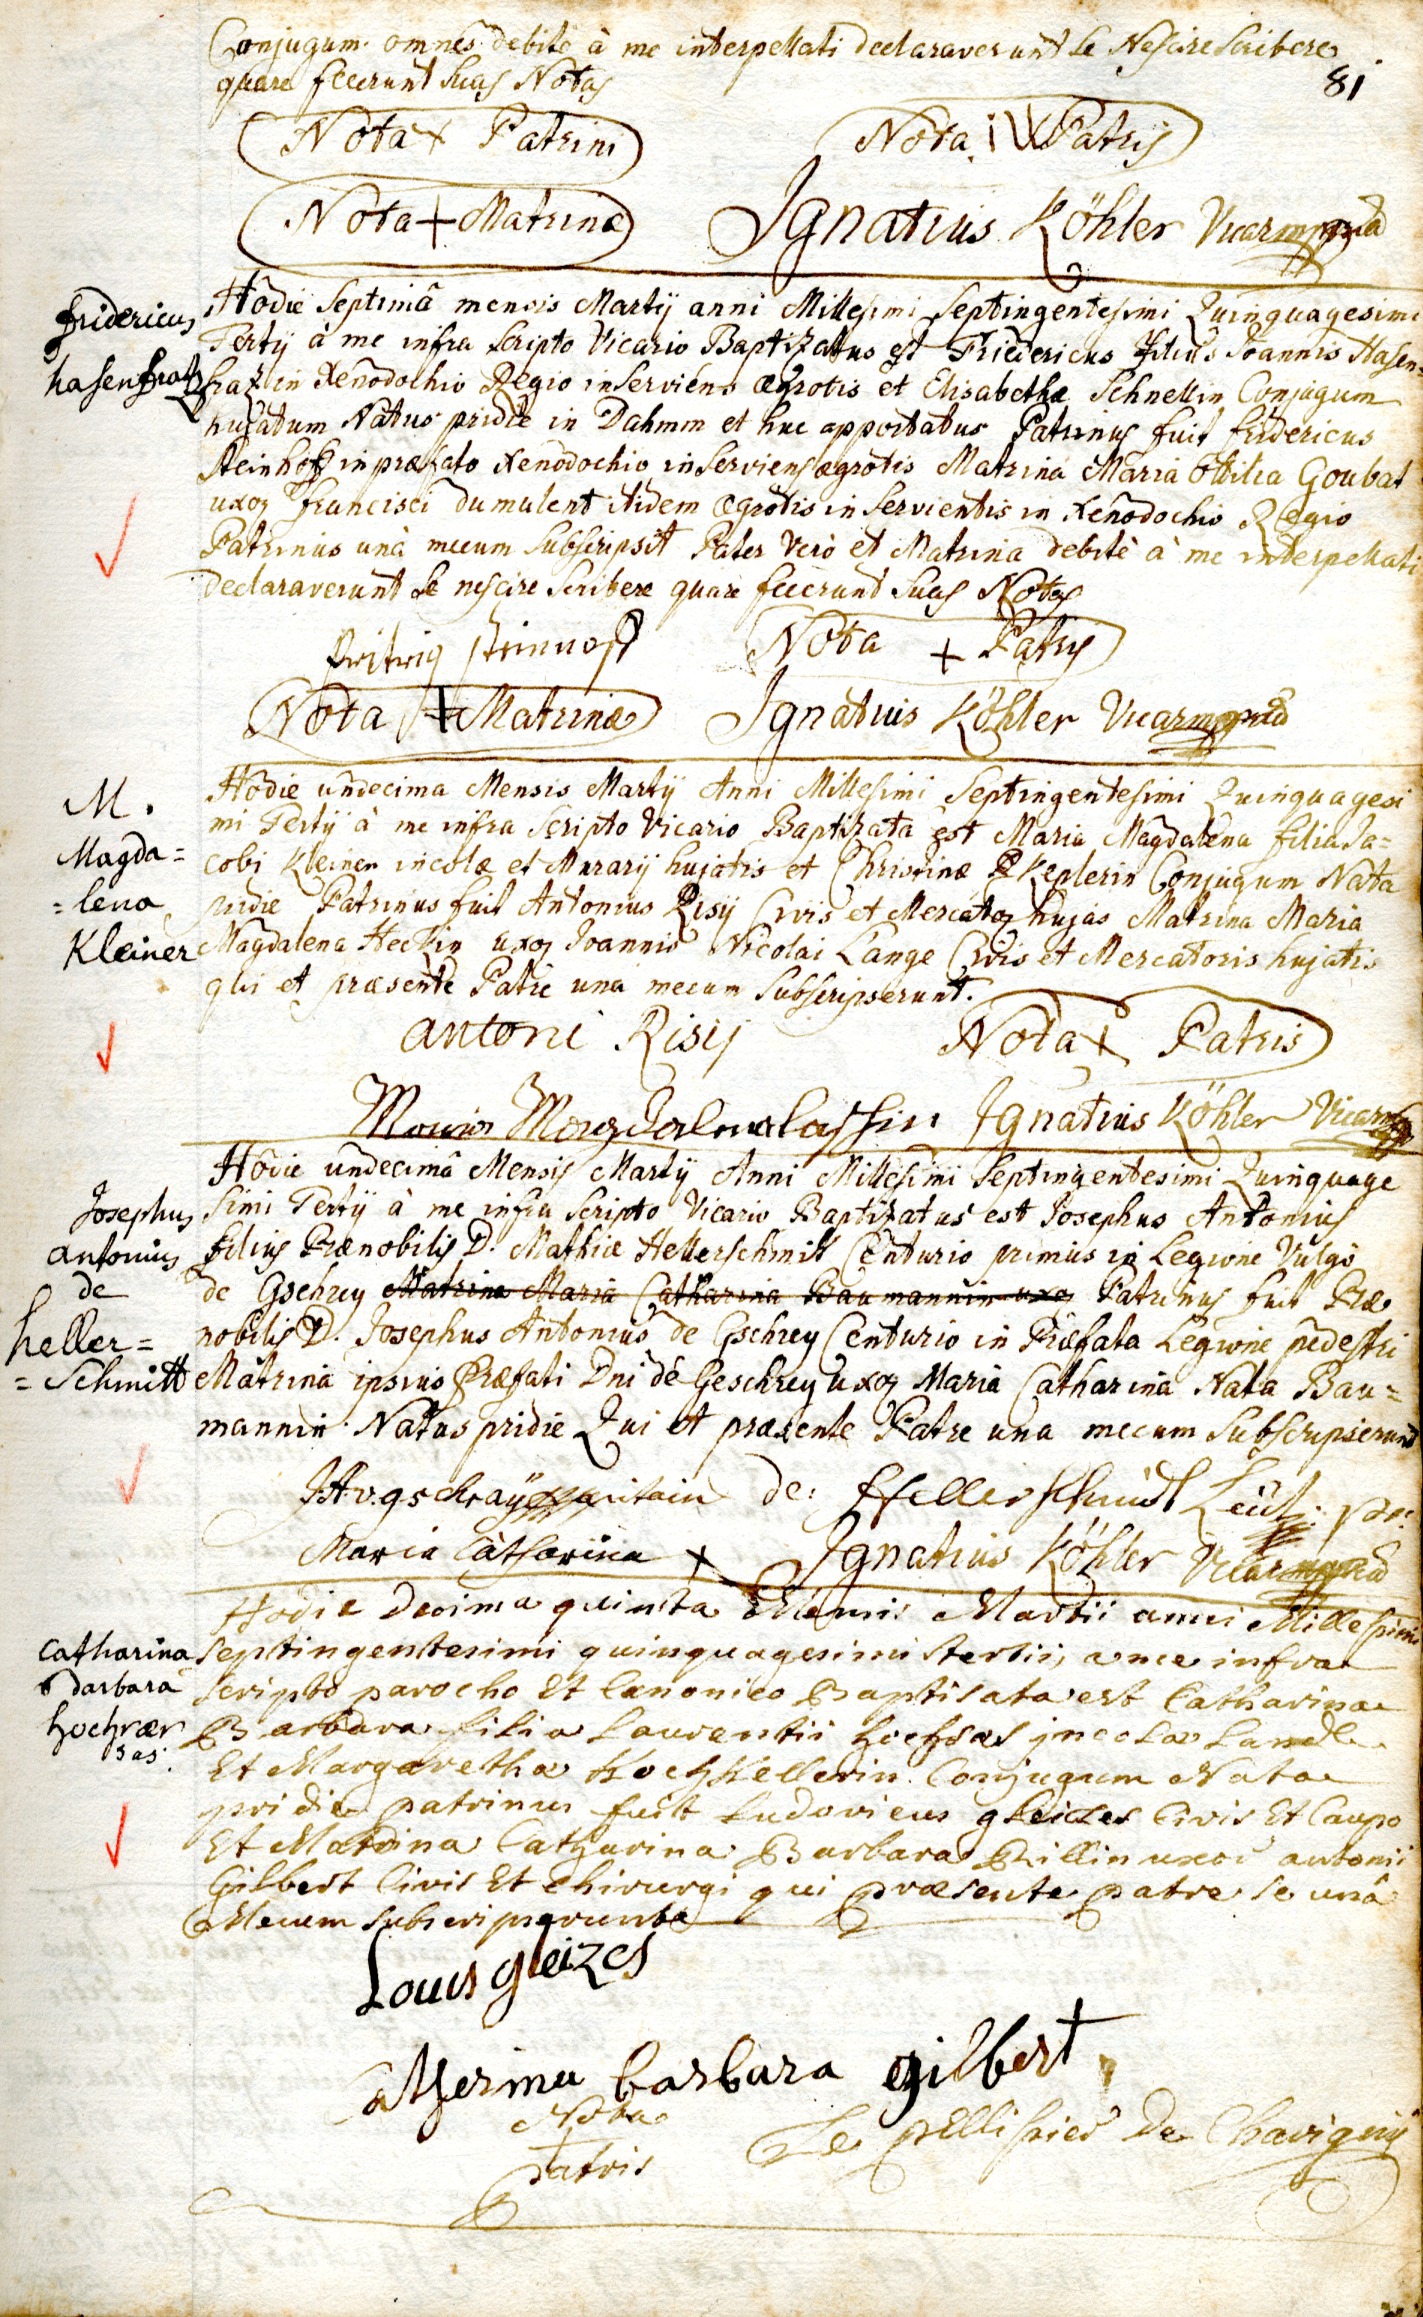 Conjugum. omnes debitè à me interpellati declaraverunt se Nescire scribere
quare fecerunt suas Notas
81
Nota + Patrini
Nota Patris
Nota + Matrinæ
Ignatius Köhler Vicar mppria
fridericus
hasenfratz
Hodie Septimâ mensis Martij anni Millesimi Septingentesimi Quinquagesimi
Tertij à me infra scripto Vicario Baptizatus est Friedericus filius Joannis Hasen=
fraz in Xenodochio Regio inserviens ægrotis et Elisabethæ Schnellin Conjugum
hujatum Natus pridie in Dahmm et huc apportatus Patrinus fuit fridericus
Steinhoff in præfato Xenodochio inserviens ægrotis Matrina Maria Ottilia Goubat
uxor francisci dumulent itidem ægrotis inservientis in Xenodochio Regio
Patrinus unà mecum subscripsit Pater Verò et Matrina debitè à me interpellati
declaraverunt se nescire scribere quare fecerunt suas Notas
Nota + Patris
Nota + Matrinæ
Ignatius Köhler Vicar mppria
M.
Magda=
=lena
Kleiner
Hodie undecima Mensis Martij Anni Millesimi Septingentesimi Quinquagesi
mi Tertij à me infra scripto Vicario Baptizata est Maria Magdalena filia Ja=
cobi Kleiner incolæ et Murarij hujatis et Christinæ Keplerin Conjugum Nata
pridie Patrinus fuit Antonius Risij Civis et Mercator hujas Matrina Maria
Magdalena Heckin uxor Joannis Nicolai Lange Civis et Mercatoris hujatis
qui et præsente Patre una mecum subscripserunt.
antoni Risij
Nota + Patris
Maria Magdalena
Ignatius Köhler Vicar
Josephus
antonius
de
heller=
=Schmitt
Hodie undecimâ Mensis Martij Anni Millesimi Septingentesimi Quinquage
simi Tertij à me infra scripto Vicario Baptizatus est Josephus Antonius
filius Prænobilis D. Mathiæ Hellerschmitt Centurio primus in Legione Vulgò
de Gschrey Matrina Maria Catharina Baumannin uxor Patrinus fuit Præ
nobilis D. Josephus Antonius de Gschrey Centurio in Præfata Legione pedestri
Matrina ipsius Præfati Dni de Geschrey uxor Maria Catharina Nata Bau=
mannin Natus pridie Qui et præsente Patre una mecum subscripserunt
J A v. gschraÿ capitain
de: Hellerschmidt Leüt:
Maria Catharina +
Ignatius Köhler Vicar mppria
Catharina
barbara
hochrær
sas.
Hodie Decima quinta Mensis Martii anni Millesimi
septingentesimi quinquagesimi tertii, a me infra
scripto parocho Et Canonico Baptisata est Catharina
Barbara filia Laurentii incolæ
Et Margaretha Kochkellerin Conjugum Nata
pridie patrinus fuit Ludovicus gleizes Civis Et Caupo
Et Matrina Catharina Barbara Rillin uxor antonii
Gilbert Civis Et Chirurgi qui præsente patre se unâ
Mecum subscripserunt
Louis gleizes
Catherina barbara gilbert
Nota
Patris
Le pellissier De Chavigny